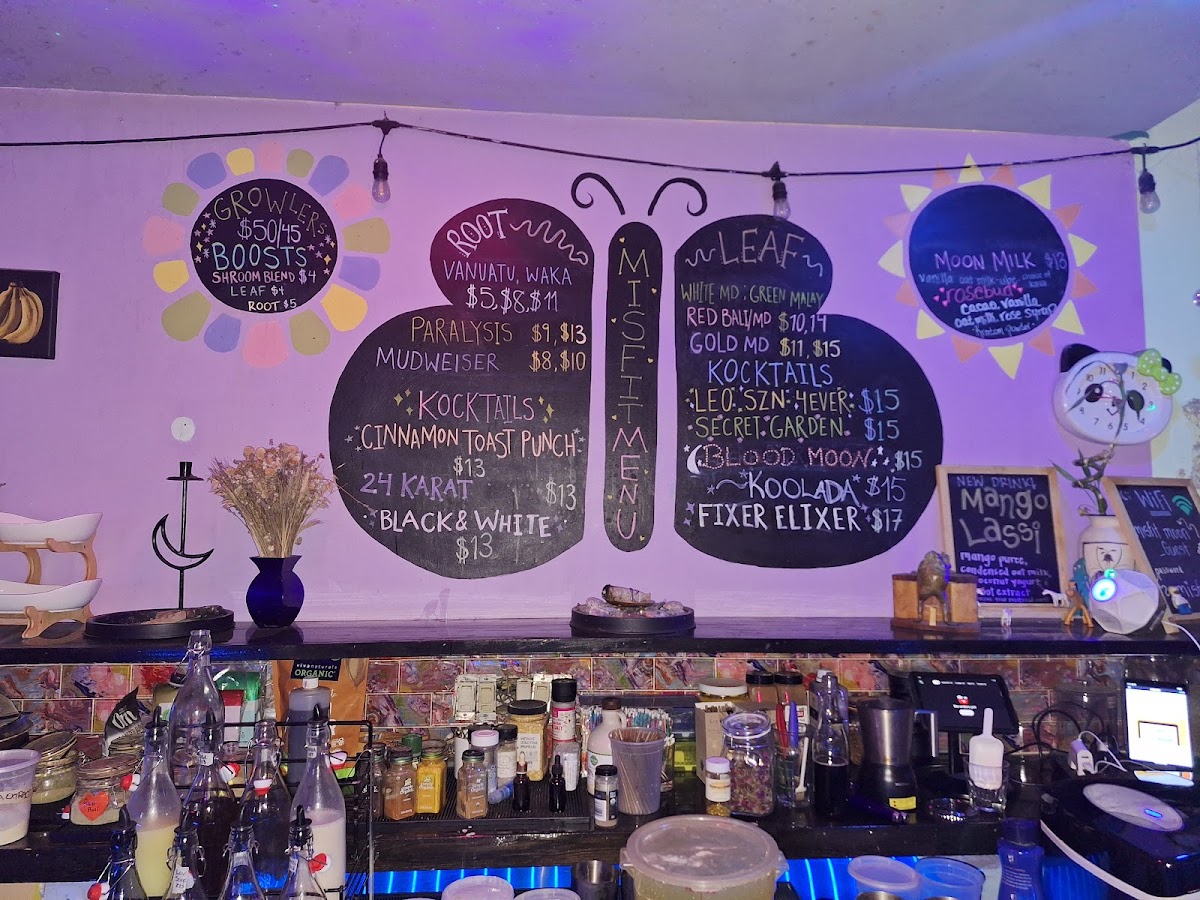 GROWLERS
$50/45
BOOSTS
SHROOM BLEND $4
LEAF $4
ROOT $5
ROOT
VANUATU, WAKA
$5, $8, $11
PARALYSIS $9, $13
MUDWEISER $8, $10
KOCKTAILS
CINNAMON TOAST PUNCH
$13
24 KARAT $13
BLACK & WHITE
$13
MISFIT MENU
LEAF
WHITE MD : GREEN MALAY
RED BALI/MD $10, 14
GOLD MD $11, $15
KOCKTAILS
LEO SZN: HEVER: $15
SECRET GARDEN $15
BLOOD MOON $15
KOOLADA $15
FIXER ELIXER $17
MOON MILK $13
vanilla oat milk
choice of
kava
rosebud
cacao, vanilla
oat milk, rose syrup
NEW DRINK!
Mango
Lassi
mango puree,
condensed oat milk,
coconut yogurt
extract
WiFi
misfit moon
Guest
password
viva naturals
ORGANIC